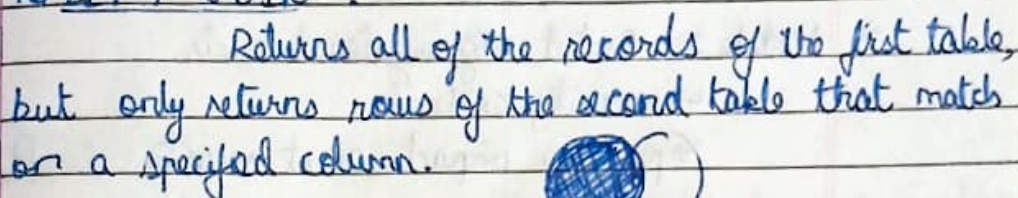 Returns all of the records of the first table,
but only returns rows of the second table that match
on a specified column.